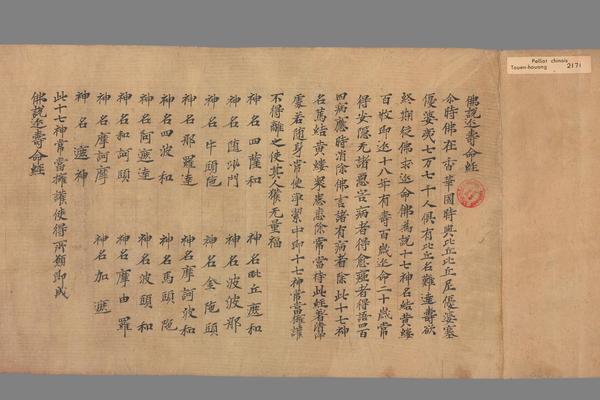 佛說延壽命經
尒時佛在香華園時與比丘比丘尼優婆塞
優婆夷七万七千人俱有比丘名難達壽欲
終期從佛求延命佛為說十七神名結黃縷
百牧即延十八年有壽百歲延命二十歲常
得安隱无諸惡害病者得愈瘂者得語四百
四病應時消除佛言諸有病者除此十七神
名萬結黃縷衆患悉除常當持此經著清淨
處若隨身常使淨絜中即十七神常當擁護
不得離之使其人獲无量福
神名四薩和 神名毗丘遮和
神名随沙門 神名波彼那
神名牛頭陁 神名金陁頭
神名那羅達 神名摩訶波和
神名四波和 神名馬頭陁
神名阿遮達 神名波頭和
神名和訶頭 神名摩由羅
神名摩訶摩 神名加遮
神名遮神
此十七神常當擁護使得所願即成
佛說延壽命經
Pelliot chinois
Touen-houang 2171